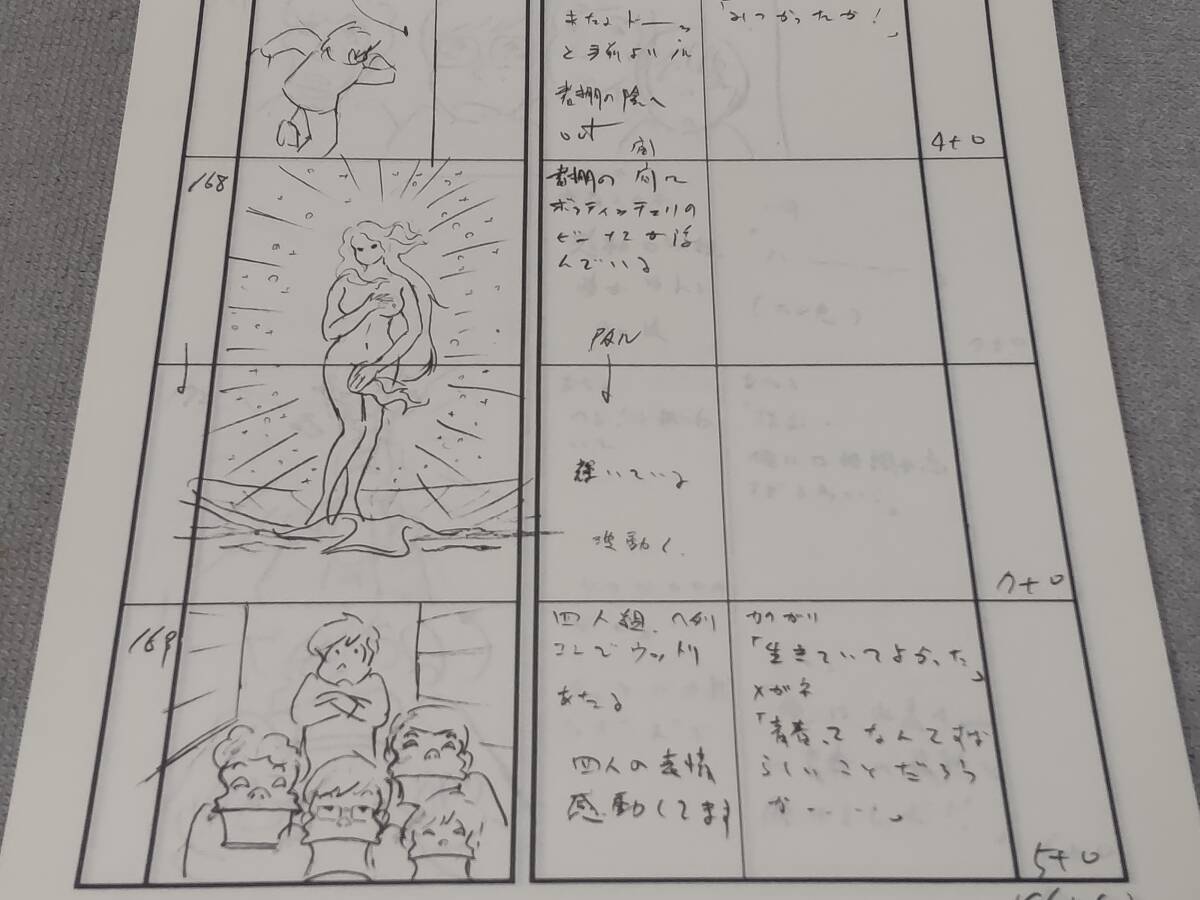 またよトーっ
と手前よいル
書棚の陰へ
out
「みつかったか!」
4+0
168
書棚の間に
ボッティッチェリの
ビーナスが浮
んでいる
PAN
輝いている
波動く
7+0
169
四人組、へ列
コレでウットリ
あたる
四人の表情
感動してます
「生きていてよかった」
メガネ
「青春ってなんてすば
らしいことだろう
か……」
5+0